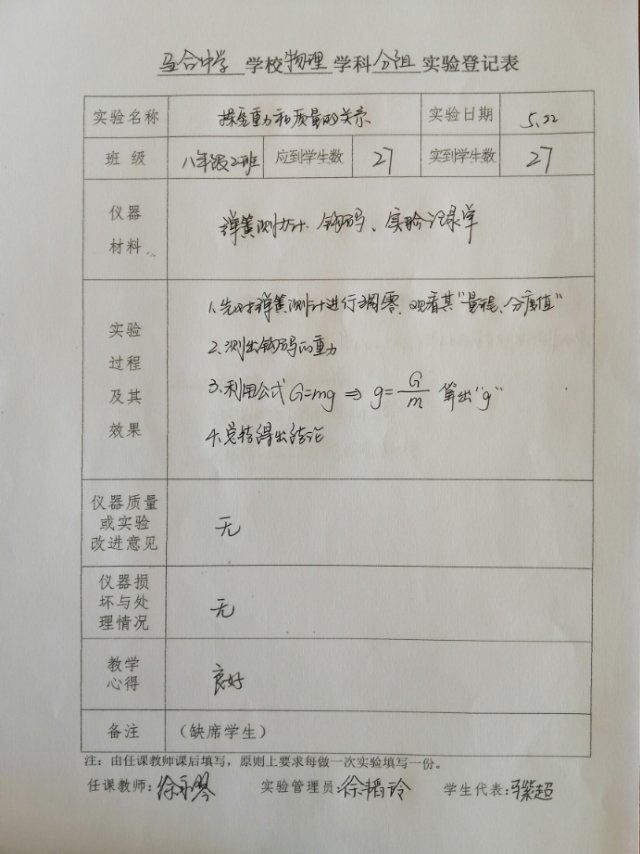 马合中学 学校 物理 学科 分组 实验登记表
实验名称 探究重力和质量的关系 实验日期 5.22
班级 八年级2班 应到学生数 27 实到学生数 27
仪器材料 弹簧测力计、钩码、实验记录单
实验过程及其效果
1.先对弹簧测力计进行调零、观看其"量程、分度值"
2.测出钩码的重力
3.利用公式G=mg ⇒ g=G/m 算出"g"
4.总结得出结论
仪器质量或实验改进意见 无
仪器损坏与处理情况 无
教学心得 良好
备注 (缺席学生)
注:由任课教师课后填写,原则上要求每做一次实验填写一份。
任课教师:徐永琴 实验管理员:徐韬玲 学生代表: